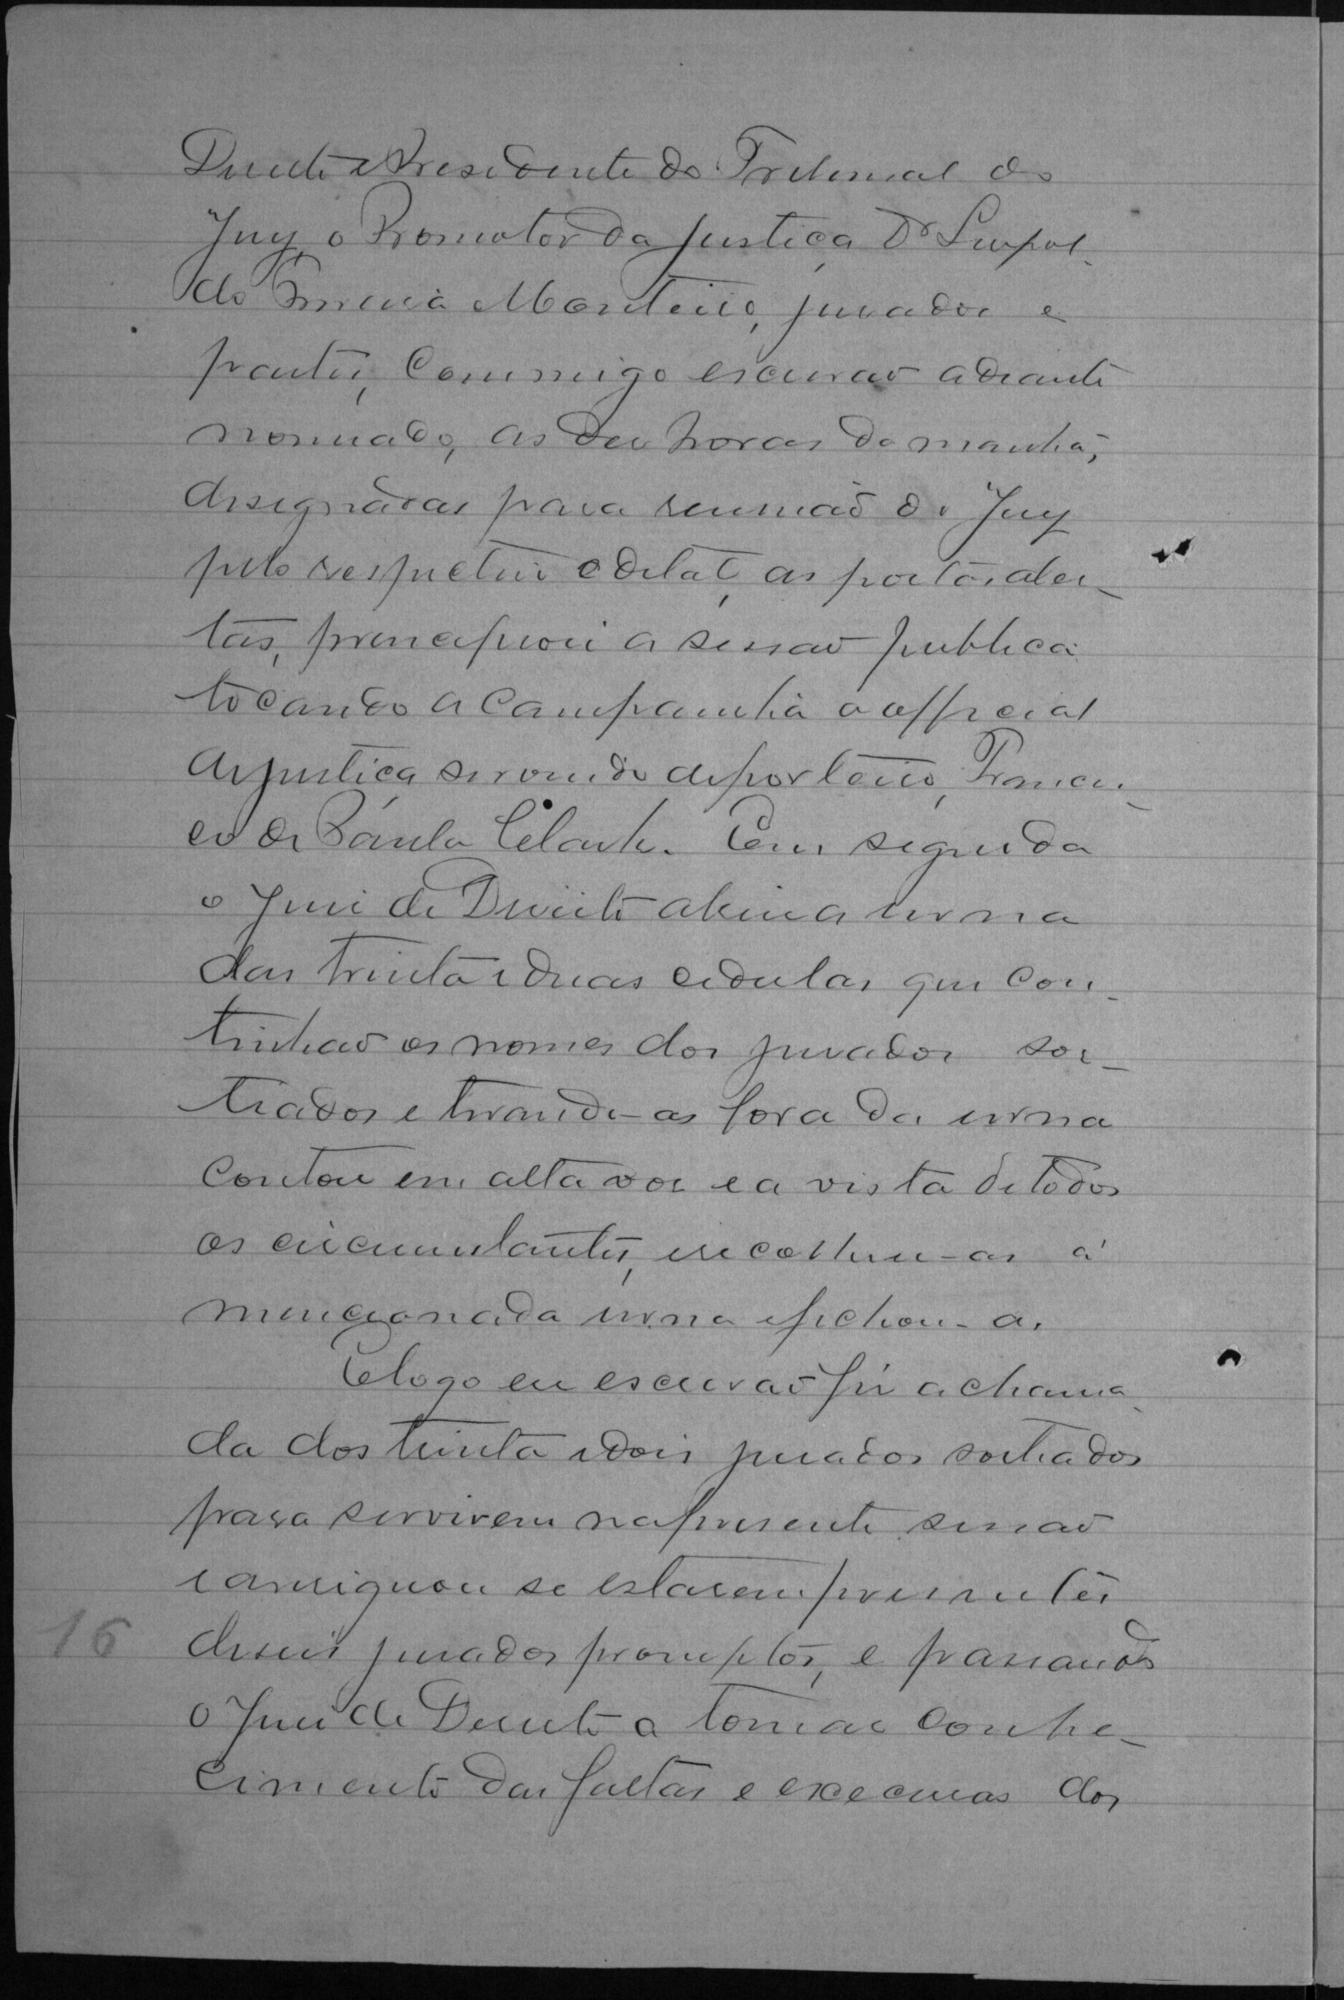 Direito e Presidente do Tribunal do
Jury, o Promotor da Justiça Dr Leopol-
do Monteiro, jurados e
partes, commigo escrivão adiante
nomeado, as dez horas da manhã,
designadas para reunião do Jury
pelo respectivo edital, as portas aber-
tas, principiou a sessão publica
tocando a campainha o official
de justiça servindo de porteiro, Francis-
co de Páula Em seguida
o Juiz de Direito abrio a urna
das trinta e duas cedulas que con-
tinhão os nomes dos jurados sor-
tiados e tirando-as fora da urna
contou em alta voz e a vista de todos
os circumstantes, recolheu-as á
mencionada urna e fichou-a.
E logo eu escrivão fiz a chama-
da dos trinta e dois jurados sortiados
para servirem na presente sessão
e averiguou se estarem presentes
deseis jurados promptos, e passando
o Juiz de Direito a tomar conhe-
cimento das faltas e excecuças dos
16